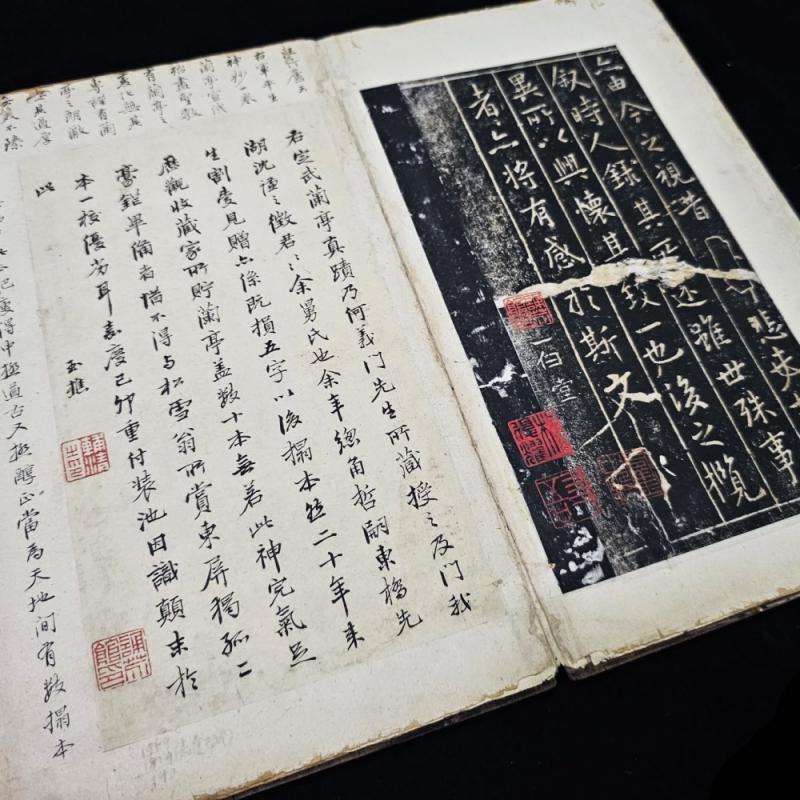 亦由今之視昔悲夫
敘時人錄其所述雖世殊事
異所以興懷其致一也後之攬
者亦將有感於斯文
右定武蘭亭真蹟乃何義門先生所藏授之及門我
湖沈謹之徵君之余舅氏也余年總角哲嗣東橋先
生割愛見贈亦係既損五字以後搨本然二十年來
歷觀收藏家所貯蘭亭蓋數十本無若此神完氣足
豪鋩畢備者惜不得与松雪翁所賞東屏獨孤二
本一挍優劣耳嘉慶己卯重付裝池因識顛末於
此
玉樵
右軍平生
得中極過古又極醇正當為天地間有數搨本